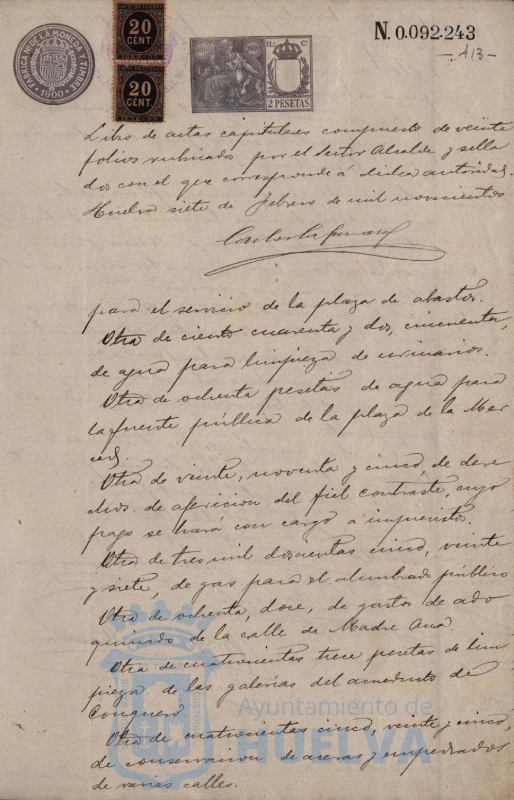 FABRICA Nal DE LA MONEDA Y TIMBRE
1900
20
CENT.
20
CENT.
11.ª Cª
2 PESETAS
N. 0.092.243
- 413 -
Libro de actas capitulares compuesto de veinte
folios rubricados por el Señor Alcalde y sella
dos con el que corresponde á dicha autoridad.
Huelva siete de Febrero de mil novecientos
para el servicio de la plaza de abastos.
Otra de ciento cuarenta y dos, cincuenta,
de agua para limpieza de urinarios.
Otra de ochenta pesetas de agua para
la fuente pública de la plaza de la Mer
ced.
Otra de veinte, noventa y cinco, de dere
chos de afericion del fiel contraste, cuyo
pago se hará con cargo á imprevistos.
Otra de tres mil doscientas cinco, veinte
y siete, de gas para el alumbrado público
Otra de ochenta, doce, de gastos de ado
quinado de la calle de Madre Ana.
Otra de cuatrocientas trece pesetas de lim
pieza de las galerías del acueducto de
Conquero.
Otra de cuatrocientas cinco, veinte y cinco,
de conservacion de aceras y empedrados
de varias calles.
Ayuntamiento de
HUELVA